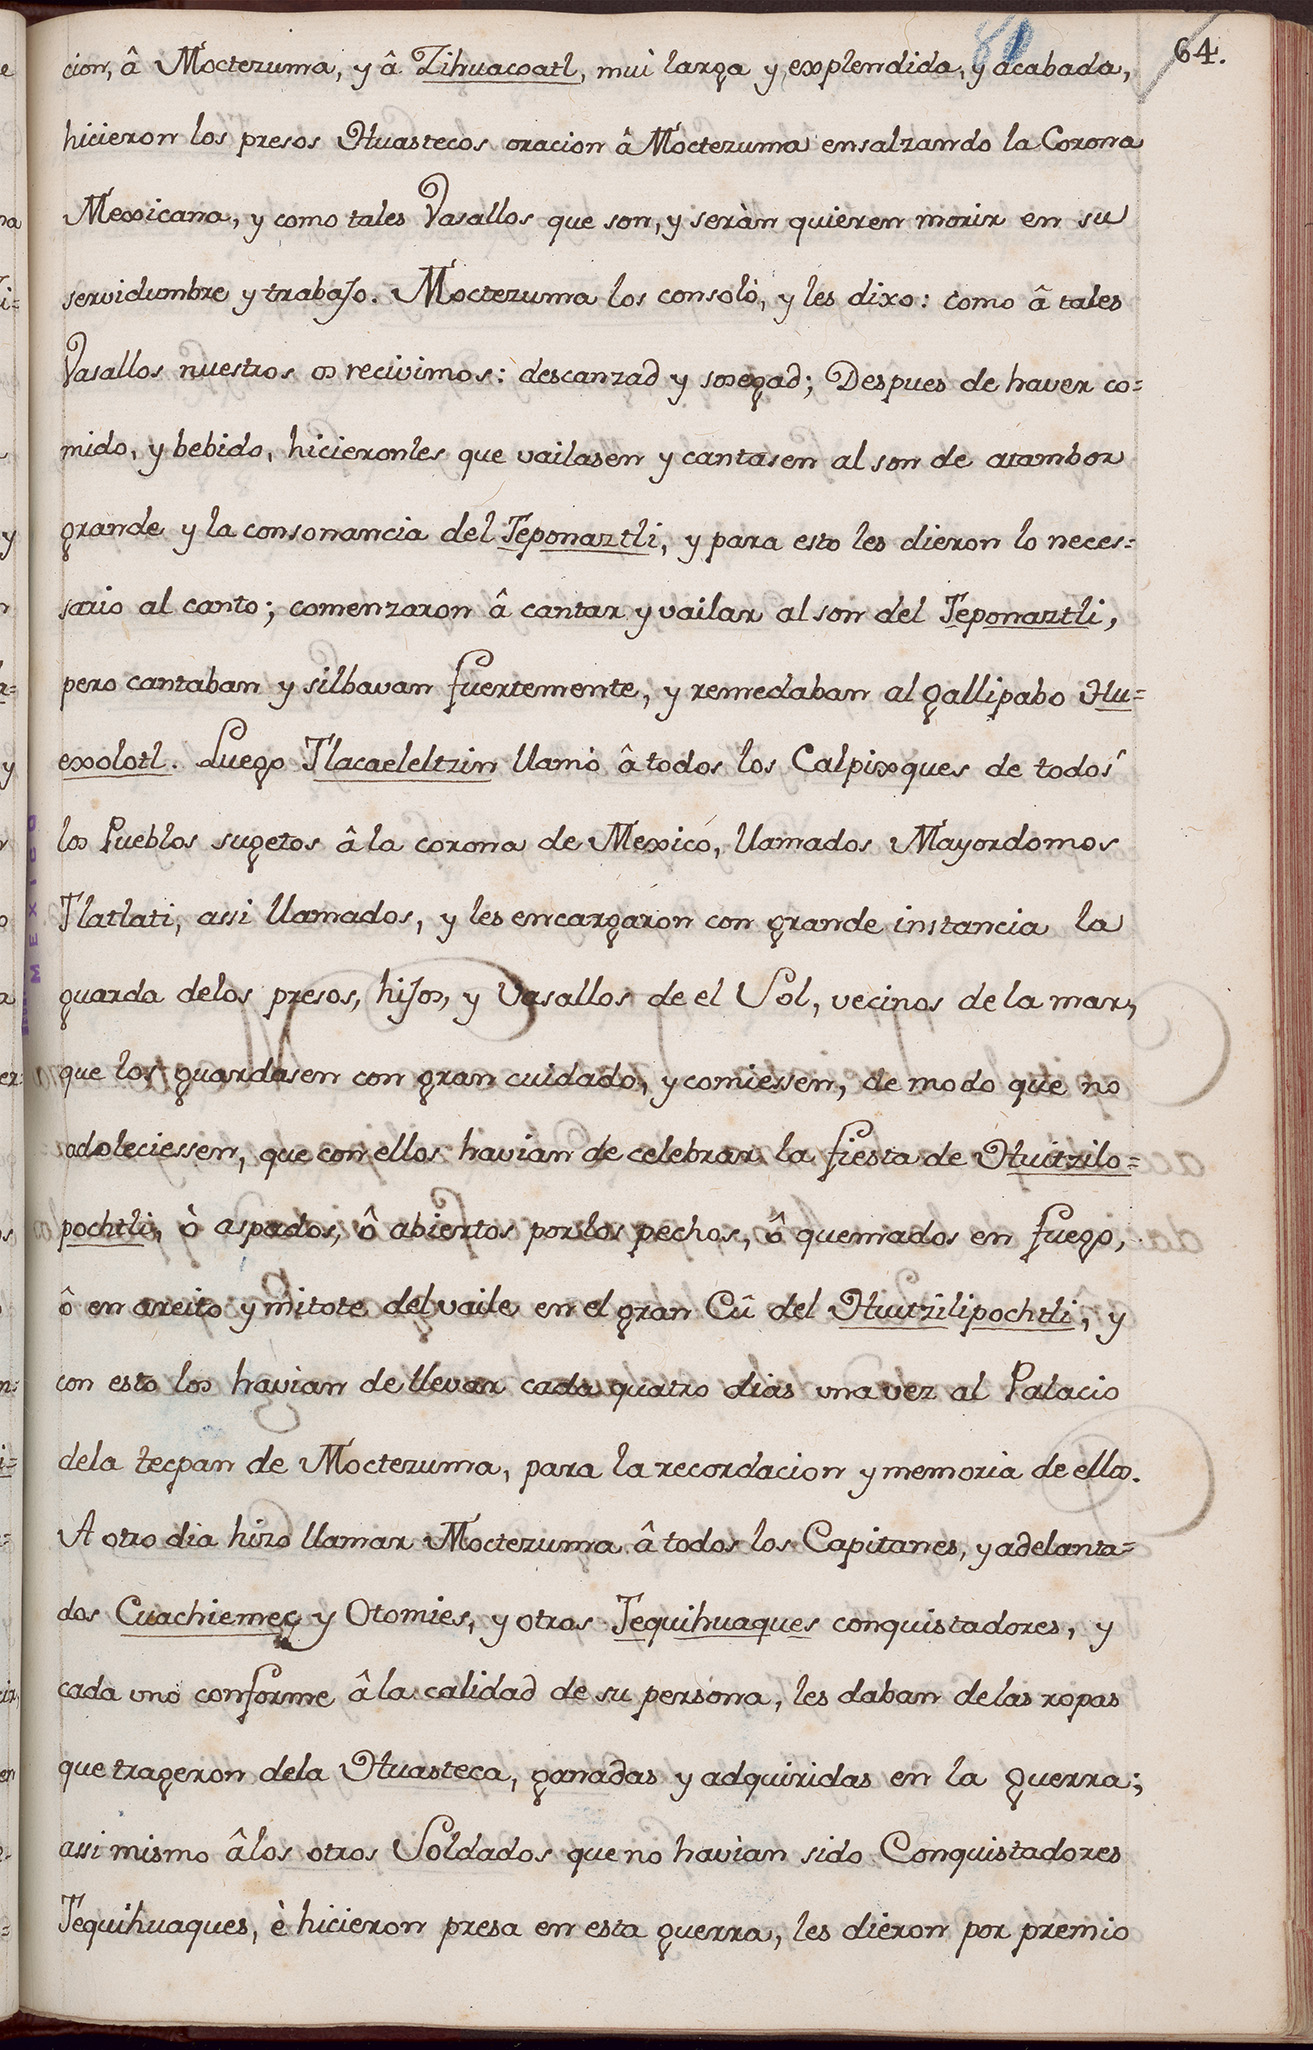 64.
cion, â Moctezuma, y â Zihuacoatl, mui larga y explendida, y acabada,
hicieron los presos Huastecos oracion â Moctezuma ensalzando la Corona
Mexicana, y como tales Vasallos que son, y seràn quieren morir en su
servidumbre y trabajo. Moctezuma los consolò, y les dixo: como â tales
Vasallos nuestros os recivimos: descanzad y sosegad; Despues de haver co=
mido, y bebido, hicieronles que vailasen y cantasen al son de atambor
grande y la consonancia del Teponaztli, y para esto les dieron lo neces=
sario al canto; comenzaron â cantar y vailar al son del Teponaztli,
pero cantaban y silbavan fuertemente, y remedaban al gallipabo Hu=
exolotl. Luego Tlacaeleltzin llamò â todos los Calpixques de todos
los Pueblos sugetos â la corona de Mexico, llamados Mayordomos
Tlatlati, assi llamados, y les encargaron con grande instancia la
guarda delos presos, hijos, y Vasallos de el Sol, vecinos de la mar,
que los guardasen con gran cuidado, y comiessen, de modo que no
adoleciessen, que con ellos havian de celebrar la fiesta de Huitzilo=
pochtli, ò aspados, ô abiertos por los pechos, ô quemados en fuego,
ô en areito y mitote del vaile en el gran Cû del Huitzilipochtli, y
con esto los havian de llevar cada quatro dias una vez al Palacio
dela tecpan de Moctezuma, para la recordacion y memoria de ellos.
A otro dia hizo llamar Moctezuma â todos los Capitanes, y adelanta=
dos Cuachiemeç y Otomies, y otros Tequihuaques conquistadores, y
cada uno conforme â la calidad de su persona, les daban de las ropas
que trageron dela Huasteca, ganadas y adquiridas en la guerra;
assi mismo â los otros Soldados que no havian sido Conquistadores
Tequihuaques, è hicieron presa en esta guerra, les dieron por prêmio